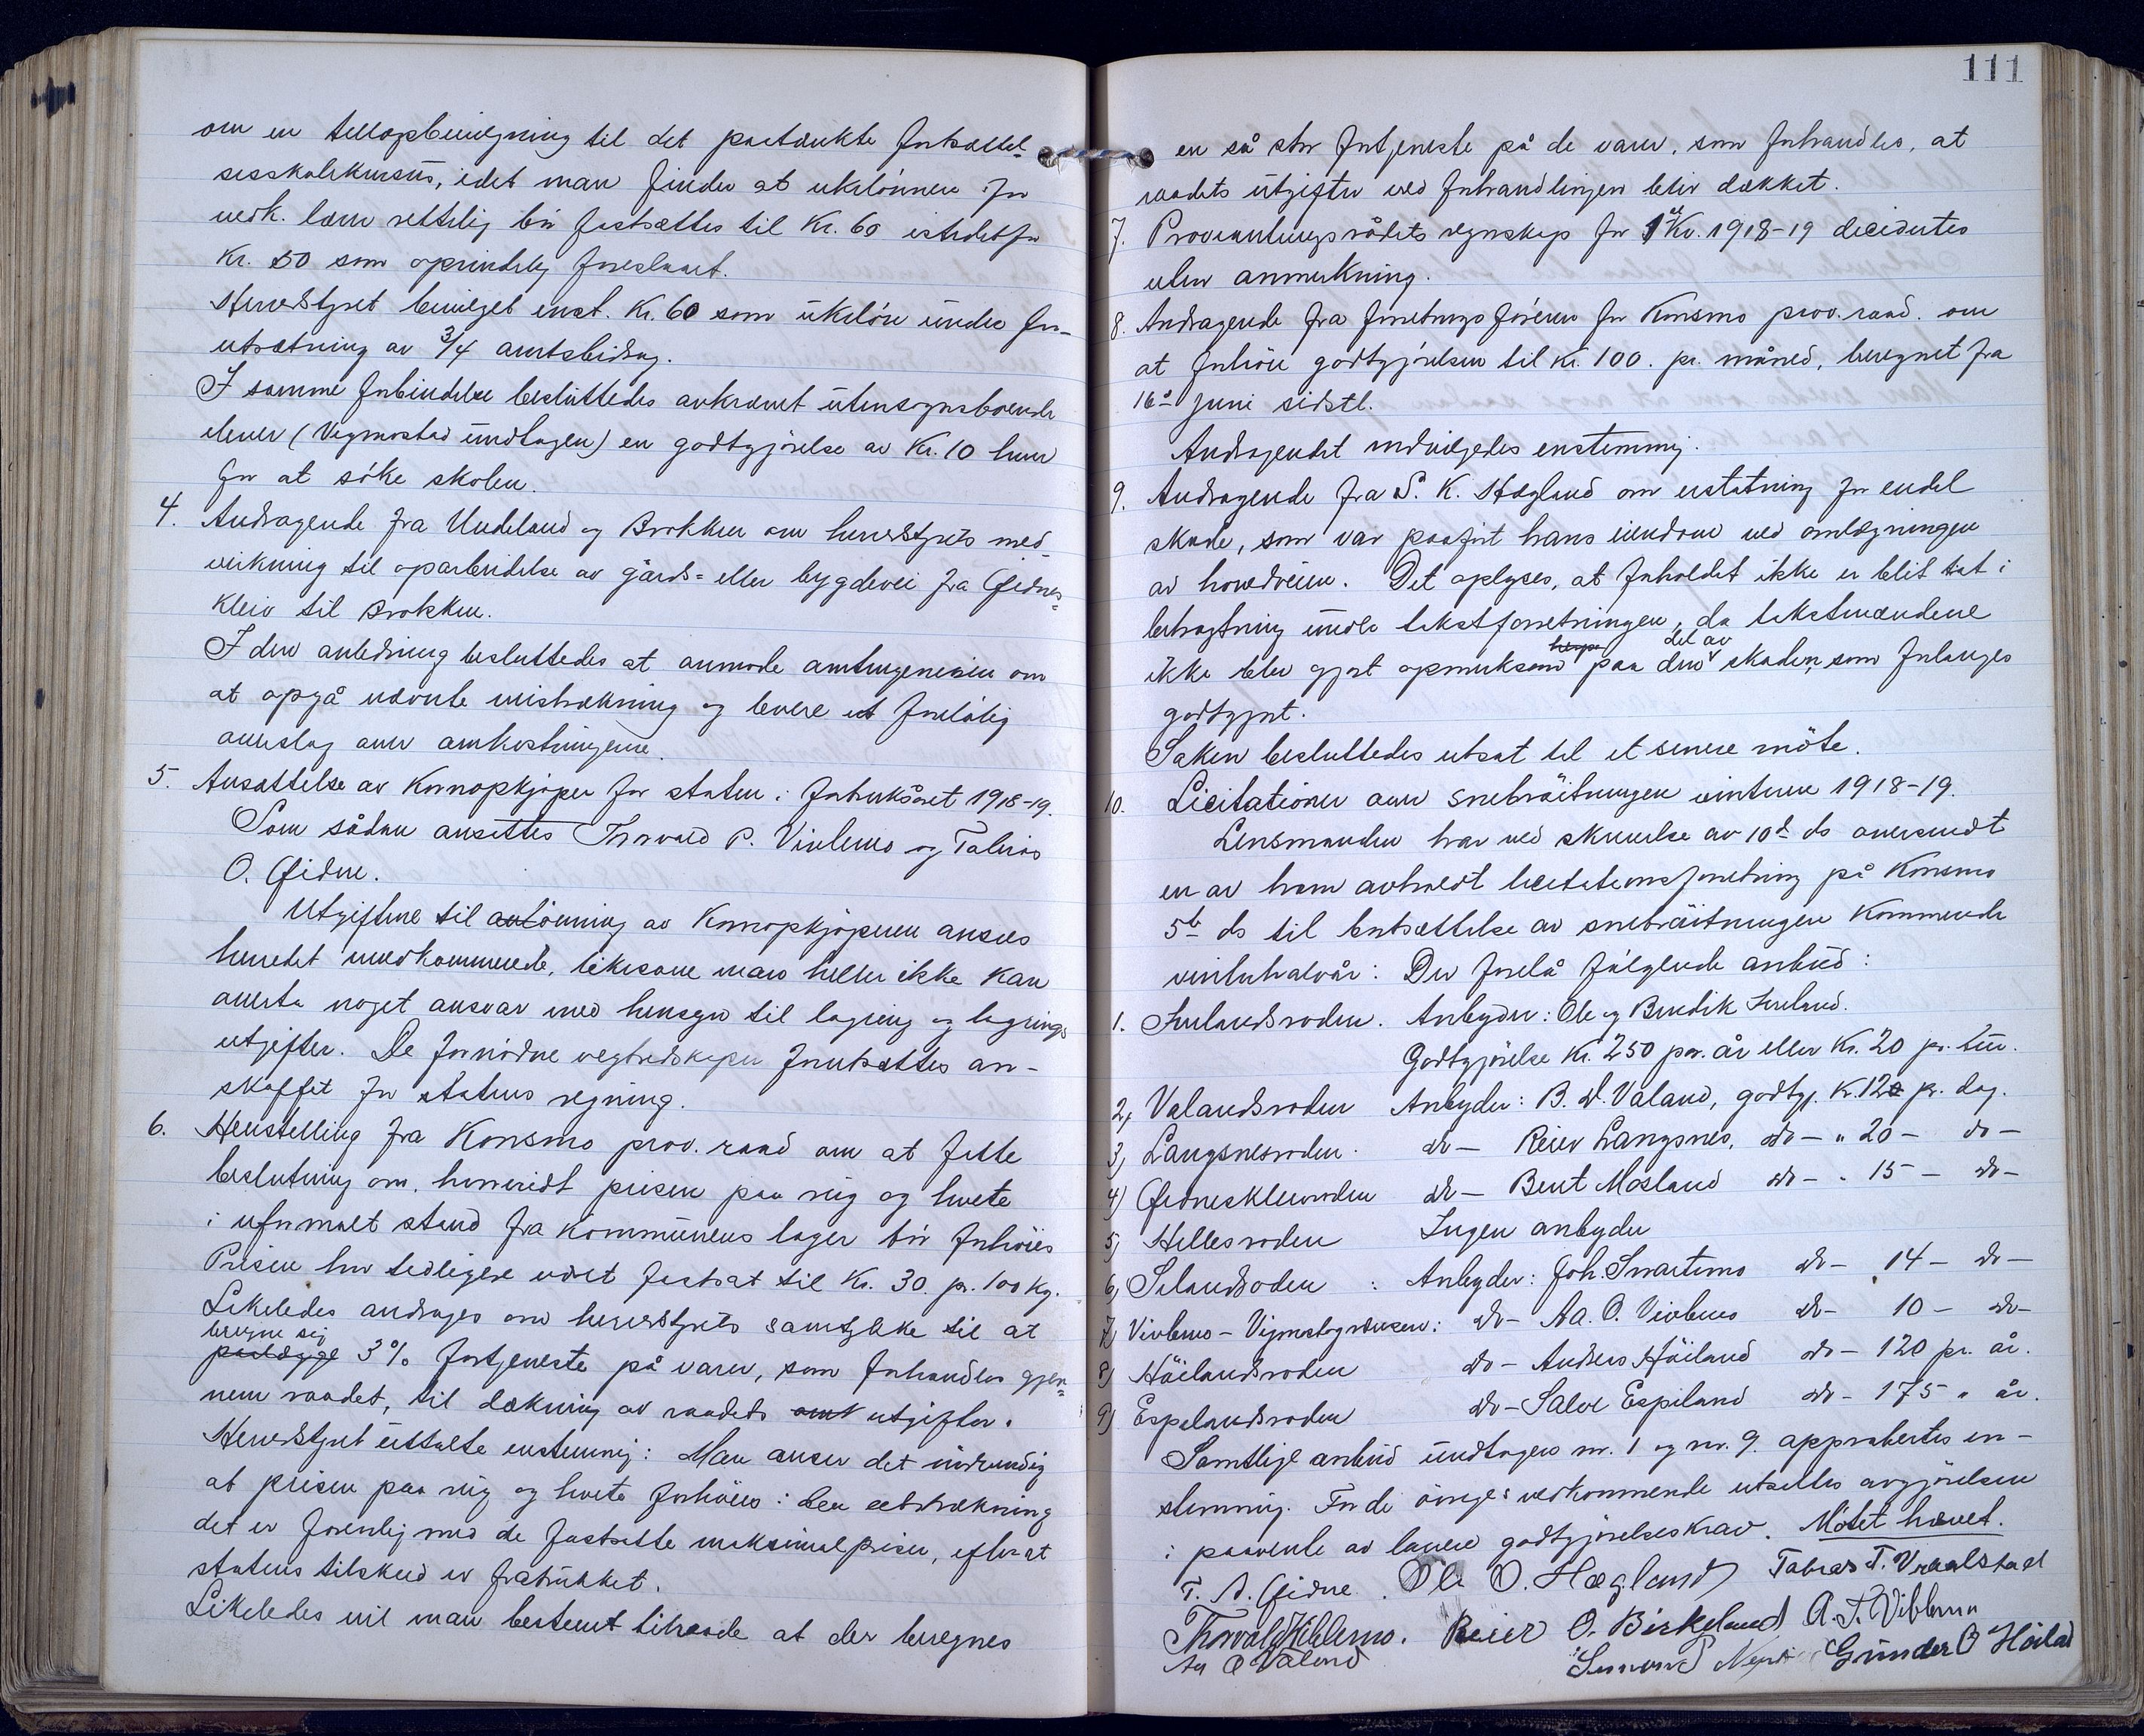 om en tillægsbevilgning til det paatænkte fortsættel-
sesskolekursus, idet man finder at ukelönnen for
vedk. lærer rettelig bör fastsættes til Kr. 60 istedetfor
Kr. 50 som oprindelig foreslaaet.
Herredstyret bevilget enst. Kr. 60 som ukelön under for-
utsætning av 3/4 amtsbidrag.
I samme forbindelse besluttedes avkrævet utensognsboende
elever (Vegmostad undtagen) en godtgjörelse av Kr. 10 hver
for at söke skolen.
4. Andragende fra Undeland og Brokken om herredstyrets med-
virkning til oparbeidelse av gårds- eller bygdevei fra Öidnes-
kleiv til Brokken.
I den anledning besluttedes at anmode amtingeniören om
at opgå nævnte veistrækning og levere et foreløbig
overslag over omkostningerne.
5. Ansættelse av Kornopkjöper for staten i forbruksåret 1918-19.
Som sådan ansattes Thorvald P. Vivlemo og Tobias
O. Øidne.
Utgifterne til avlönning av Kornopkjöperen ansees
herredet uvedkommende, likesom man heller ikke kan
overta noget ansvar med hensyn til lagring og lagrings
utgifter. De fornödne vegtredskaper forutsættes an-
skaffet for statens regning.
6. Henstilling fra Konsmo prov. raad om at fatte
beslutning om, hvorvidt prisen paa rug og hvete
i uformalt stand fra kommunens lager bör forhöies
Prisen har tidligere været fastsat til Kr. 30. pr. 100 kg.
Likeledes andrages om herredstyrets samtykke til at
beregne sig
paalægge 3% fortjeneste på varer, som forhandles gjen-
nem raadet, til dækning av raadets utgifter.
Herredstyret uttalte enstemmig: Man anser det nödvendig
at prisen paa rug og hvete forhöies i den utstrækning
det er forenlig med de fastsatte maksimalpriser, efterat
statens tilskud er fratrukket.
Likeledes vil man bestemt tilraade at der beregnes
111
en så stor fortjeneste på de varer, som forhandles, at
raadets utgifter ved forhandlingen blir dækket.
7. Provianteringsrådets regnskap for 1ste Kv. 1918-19 deciderte
uten anmerkning.
8. Andragende fra forretningsföreren for Konsmo prov. raad. om
at forhöie godtgjörelsen til Kr. 100. pr. måned, beregnet fra
16de juni sidstl.
Andragendet indvilgedes enstemmig.
9. Andragende fra S. K. Hægland om erstatning for endel
skade, som var paaført hans eiendom ved omlægningen
av hovedveien. Det oplyses, at forholdet ikke er blit tat i
betragtning under takstforretningen, da takstmændene
del av
ikke blev gjort opmerksom paa den skaden, som forlanges
godtgjort.
Saken besluttedes utsat til et senere möte.
10. Licitationer over snebröitningen vinteren 1918-19.
Lensmanden har ved skrivelse av 10de ds oversendt
en av ham avholdt licitationsforretning på Konsmo
5te ds til bortsættelse av snebröitningen kommende
vinterhalvår: Der forelå fölgende anbud:
1. Ivelandsroden. Anbyder: Ole og Bendik Iveland.
Godtgjörelse Kr. 250 pr. år eller Kr. 20 pr. tur.
2, Valandsroden Anbyder: B. D. Valand, godtgj. Kr. 12 pr. dag.
3, Langsnesroden. do - Reier Langsnes, do - " 20 - do -
4) Øidnesklevroden do - Bent Mosland do - " 15 - do -
5, Hellesroden Ingen anbyder
6, Selandsroden : Anbyder: Joh. Svartemo do - 14 - do -
7, Vivlemo - Vegmostadgrænsen: do - Aa. O. Vivlemo do - 10 - do -
8) Höilandsroden do - Anders Höiland do - 120 pr. år.
9) Espelandsroden do - Salve Espeland do - 175 " år.
Samtlige anbud undtagen nr. 1 og nr. 9. approbertes en-
stemmig. For de övriges vedkommende utsattes avgjörelsen
i paavente av lavere godtgjörelseskrav. Mötet hævet.
T. A. Øidne. Ole O. Hægland Tobias T. Vraalstad
Thorvald Viblemo. Reier O. Birkeland A. T. Viblemo
Aa O Valand Gunder O Höiland